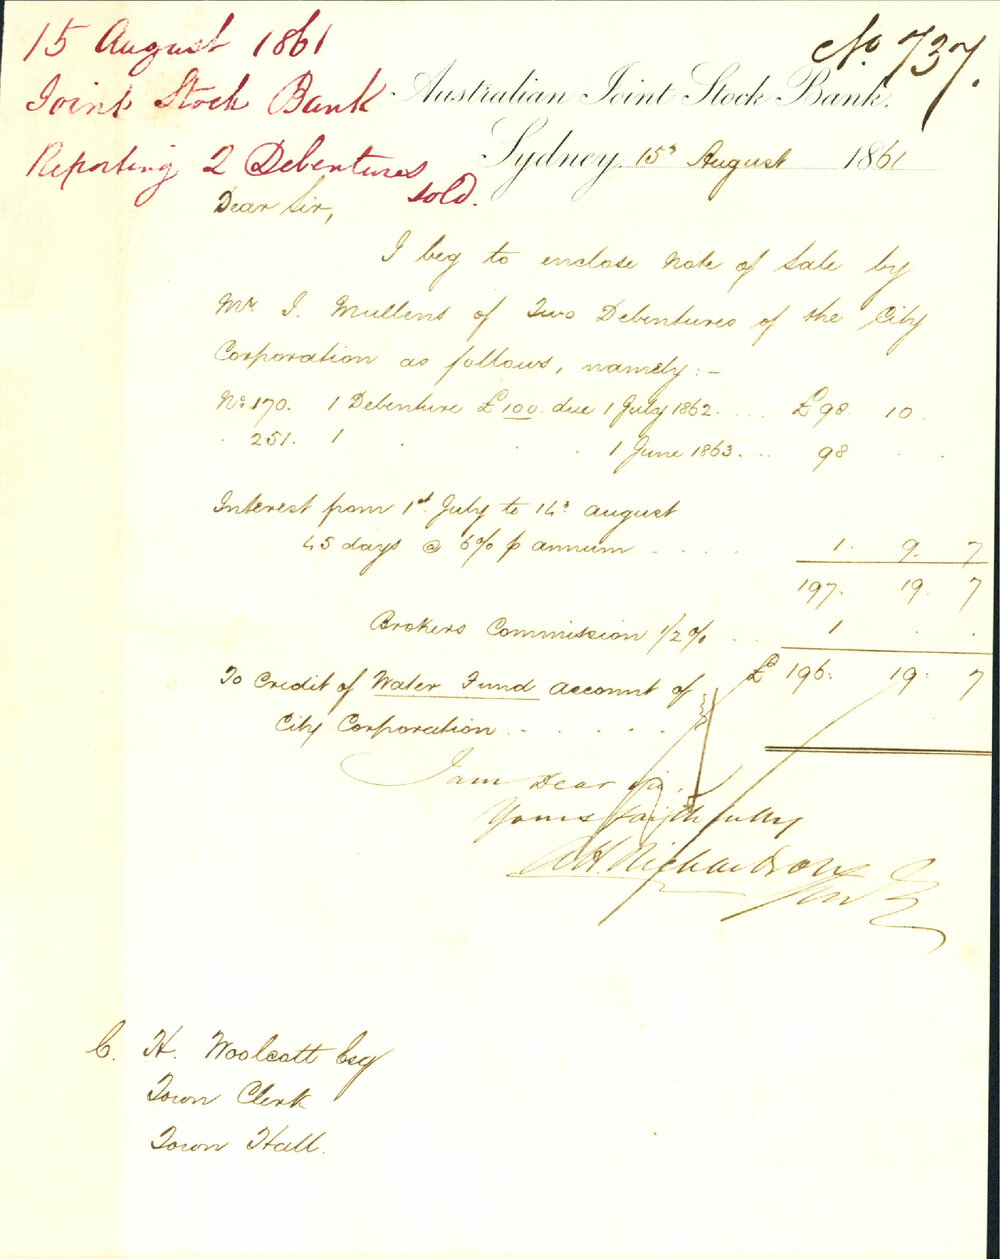 15 August 1861
Joint Stock Bank
Reporting 2 Debentures
sold.
No. 737.
Australian Joint Stock Bank.
Sydney, 15th August 1861
Dear Sir,
I beg to enclose Note of Sale by
Mr. J. Mullens of Two Debentures of the City
Corporation as follows, namely:-
No. 170. 1 Debenture £100. due 1 July 1862 .... £98 10 .
. 251. 1 . . . 1 June 1863 ... 98 . .
Interest from 1st July to 14th August
45 days @ 6% p annum .... 1. 9. 7
197. 19. 7
Brokers Commission 1/2% .. 1 . .
£ 196. 19. 7
To Credit of Water Fund account of
City Corporation ......
I am Dear Sir,
Yours faithfully
A H Richardson
C. H. Woolcott Esq
Town Clerk
Town Hall.